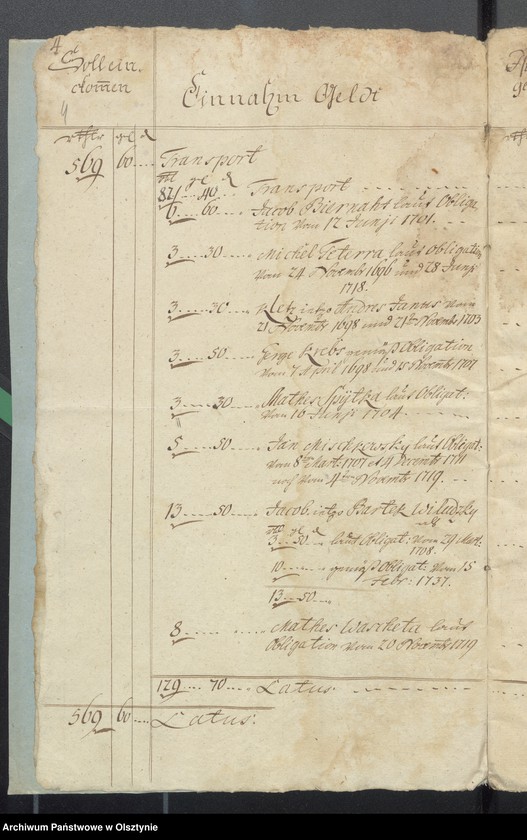 4
Soll ein-
kom̄en
Einnahm Geldt
rthlr gl d
569 60 Transport
rtl gl d
82 40 Transport
6 60 Jacob Biernaht lauts Obliga-
tion vom 12 Junji 1701.
3 30 Michel Feterra lauts Obligation
vom 24 Novembr 1696 und 28 Junji
1718.
3 30 Kletz intzo Andres Janus vom
21 Novembr 1698 und 21t Novembr 1703
3 50 Gerge Krebs Obligation
vom 7 April 1698 und 15 Novembr 1707
3 30 Mathes Spÿtka lauts Obligat:
vom 16 Junji 1704
5 50 Jan Mischkowsky lauts Obligat:
vom 8t Mart: 1707 et 4 Decembr 1711
noch vom 4t Novembr 1719
13 50 Jacob intzo Bartek Wiludzky
rtl gl d
3 50 lauts Obligat: vom 29 Mart:
1708.
10 Obligat: vom 15
Febr: 1737.
13 50
8 Mathes Wascheta lauts
Obligation vom 20 Novembr 1719
129 70 Latus.
569 60 Latus:
Archiwum Państwowe w Olsztynie